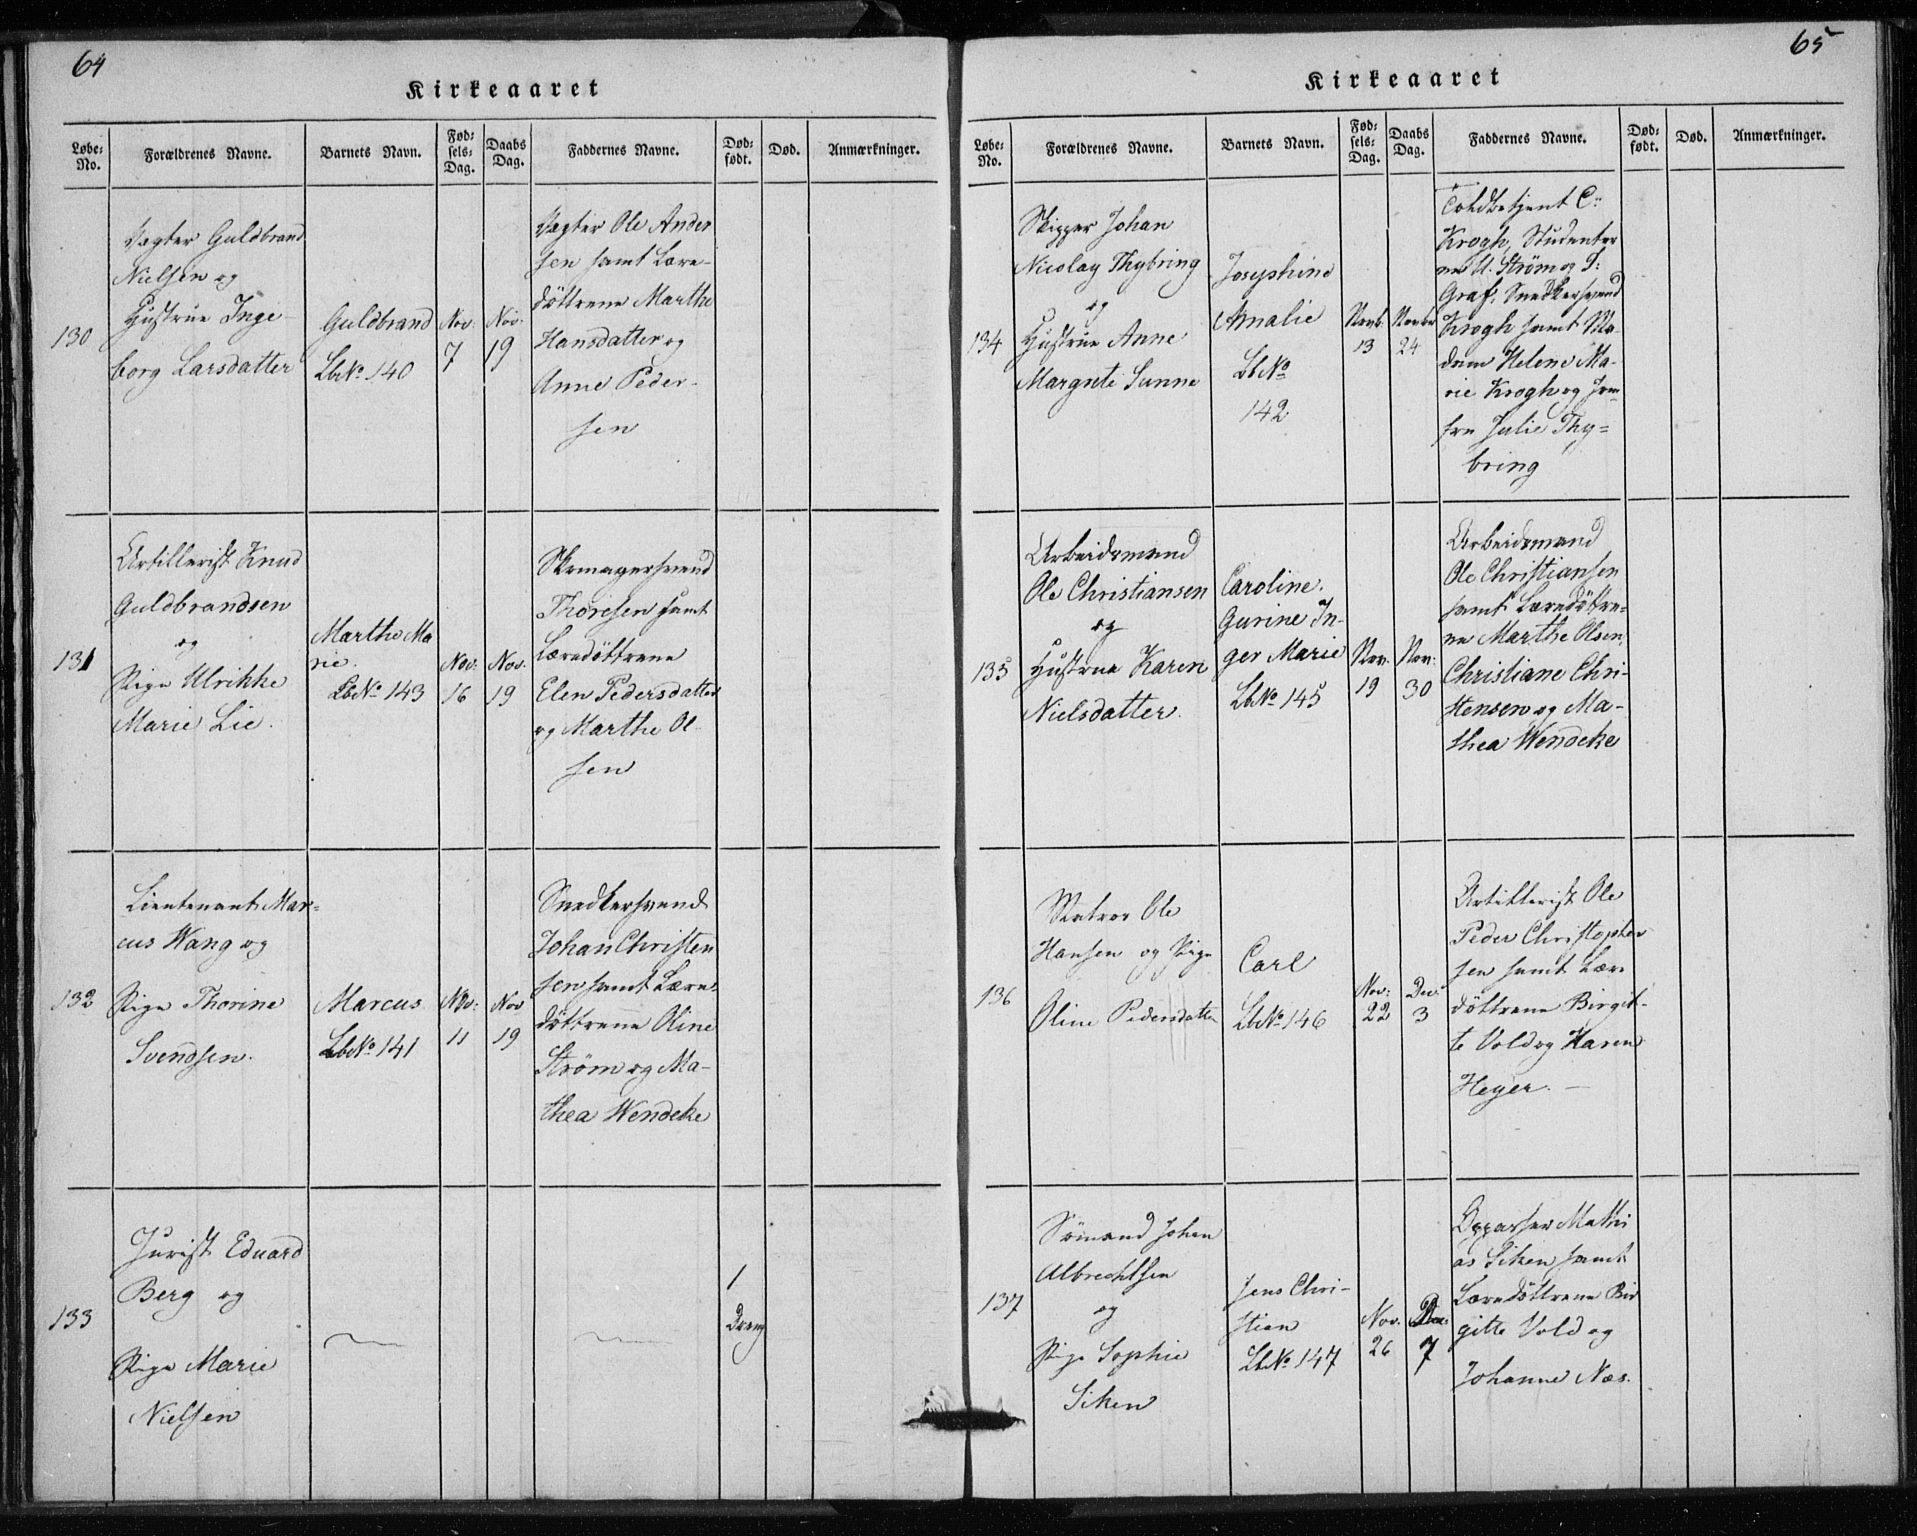 64
Kirkeaaret
Løbe-
No.
Forældrenes Navne.
Barnets Navn.
Fød-
sels-
Dag.
Daabs
Dag.
Faddernes Navne.
Død-
født.
Død.
Anmærkninger.
130
Vægter Guldbrand
Nielsen og
Hustrue Inge-
borg Larsdatter
Guldbrand
Lb. No. 140
Nov.
7
Nov.
19
Vægter Ole Ander
sen samt Lære-
döttrene Marthe
Hansdatter og
Anne Peder-
sen
131
Artillerist Knud
Guldbrandsen
og
Pige Ulrikke
Marie Lie.
Marthe Ma
rie.
Lb. No. 143
Nov.
16
Nov.
19
Skomagersvend
Thoresen samt
Læredöttrene
Elen Pedersdatter
og Marthe Ol-
sen
132
Lieutenant Mar-
cus Wang og
Pige Thorine
Svendsen.
Marcus
Lb. No. 141
Nov:
11
Nov
19
Snedkersvend
Johan Christen
sen samt Lære
döttrene Oline
Strøm og Ma-
thea Wendeke
133
Jurist Eduard
Berg og
Pige Marie
Nielsen
1
Dreng
65
Kirkeaaret
Løbe-
No.
Forældrenes Navne.
Barnets Navn.
Fød-
sels-
Dag.
Daabs
Dag.
Faddernes Navne.
Død-
født.
Død.
Anmærkninger.
134
Skipper Johan
Nicolay Thybring
og
Hustrue Anne
Margrete Sunne
Josephine
Amalie
Lb. No
142
Novb.
13
Novbr
24
Toldbetjent C:
Krogh, Studenter
ne U. Strøm og P:
Graf, Snedkersvend
Krogh samt Ma-
dam Helene Ma-
rie Krogh og Jom-
fru Julie Thy=
bring
135
Arbeidsmand
Ole Christiansen
og
Hustrue Karen
Nielsdatter.
Caroline
Gurine In-
ger Marie
Lb. No. 145
Nov.
19
Nov:
30
Arbeidsmand
Ole Christiansen
samt Læredöttre-
ne Marthe Olsen,
Christiane Chri-
stensen og Ma-
thea Wendeke
136
Matros Ole
Hansen og Pige
Oline Pedersdatter
Carl
Lb. No. 146
Nov:
22
Dec:
3
Artillerist Ole
Peder Christopher
sen samt Lære
döttrene Birgit-
te Vold og Karen
Heyer. —
137
Sömand Johan
Albrechtsen
og
Pige Sophie
Siken
Jens Chri-
stian
Lb. No. 147
Nov.
26
Dec:
7
Oppasser Mathi
as Siken samt
Læredöttrene Bir
gitte Vold og
Johanne Næs.